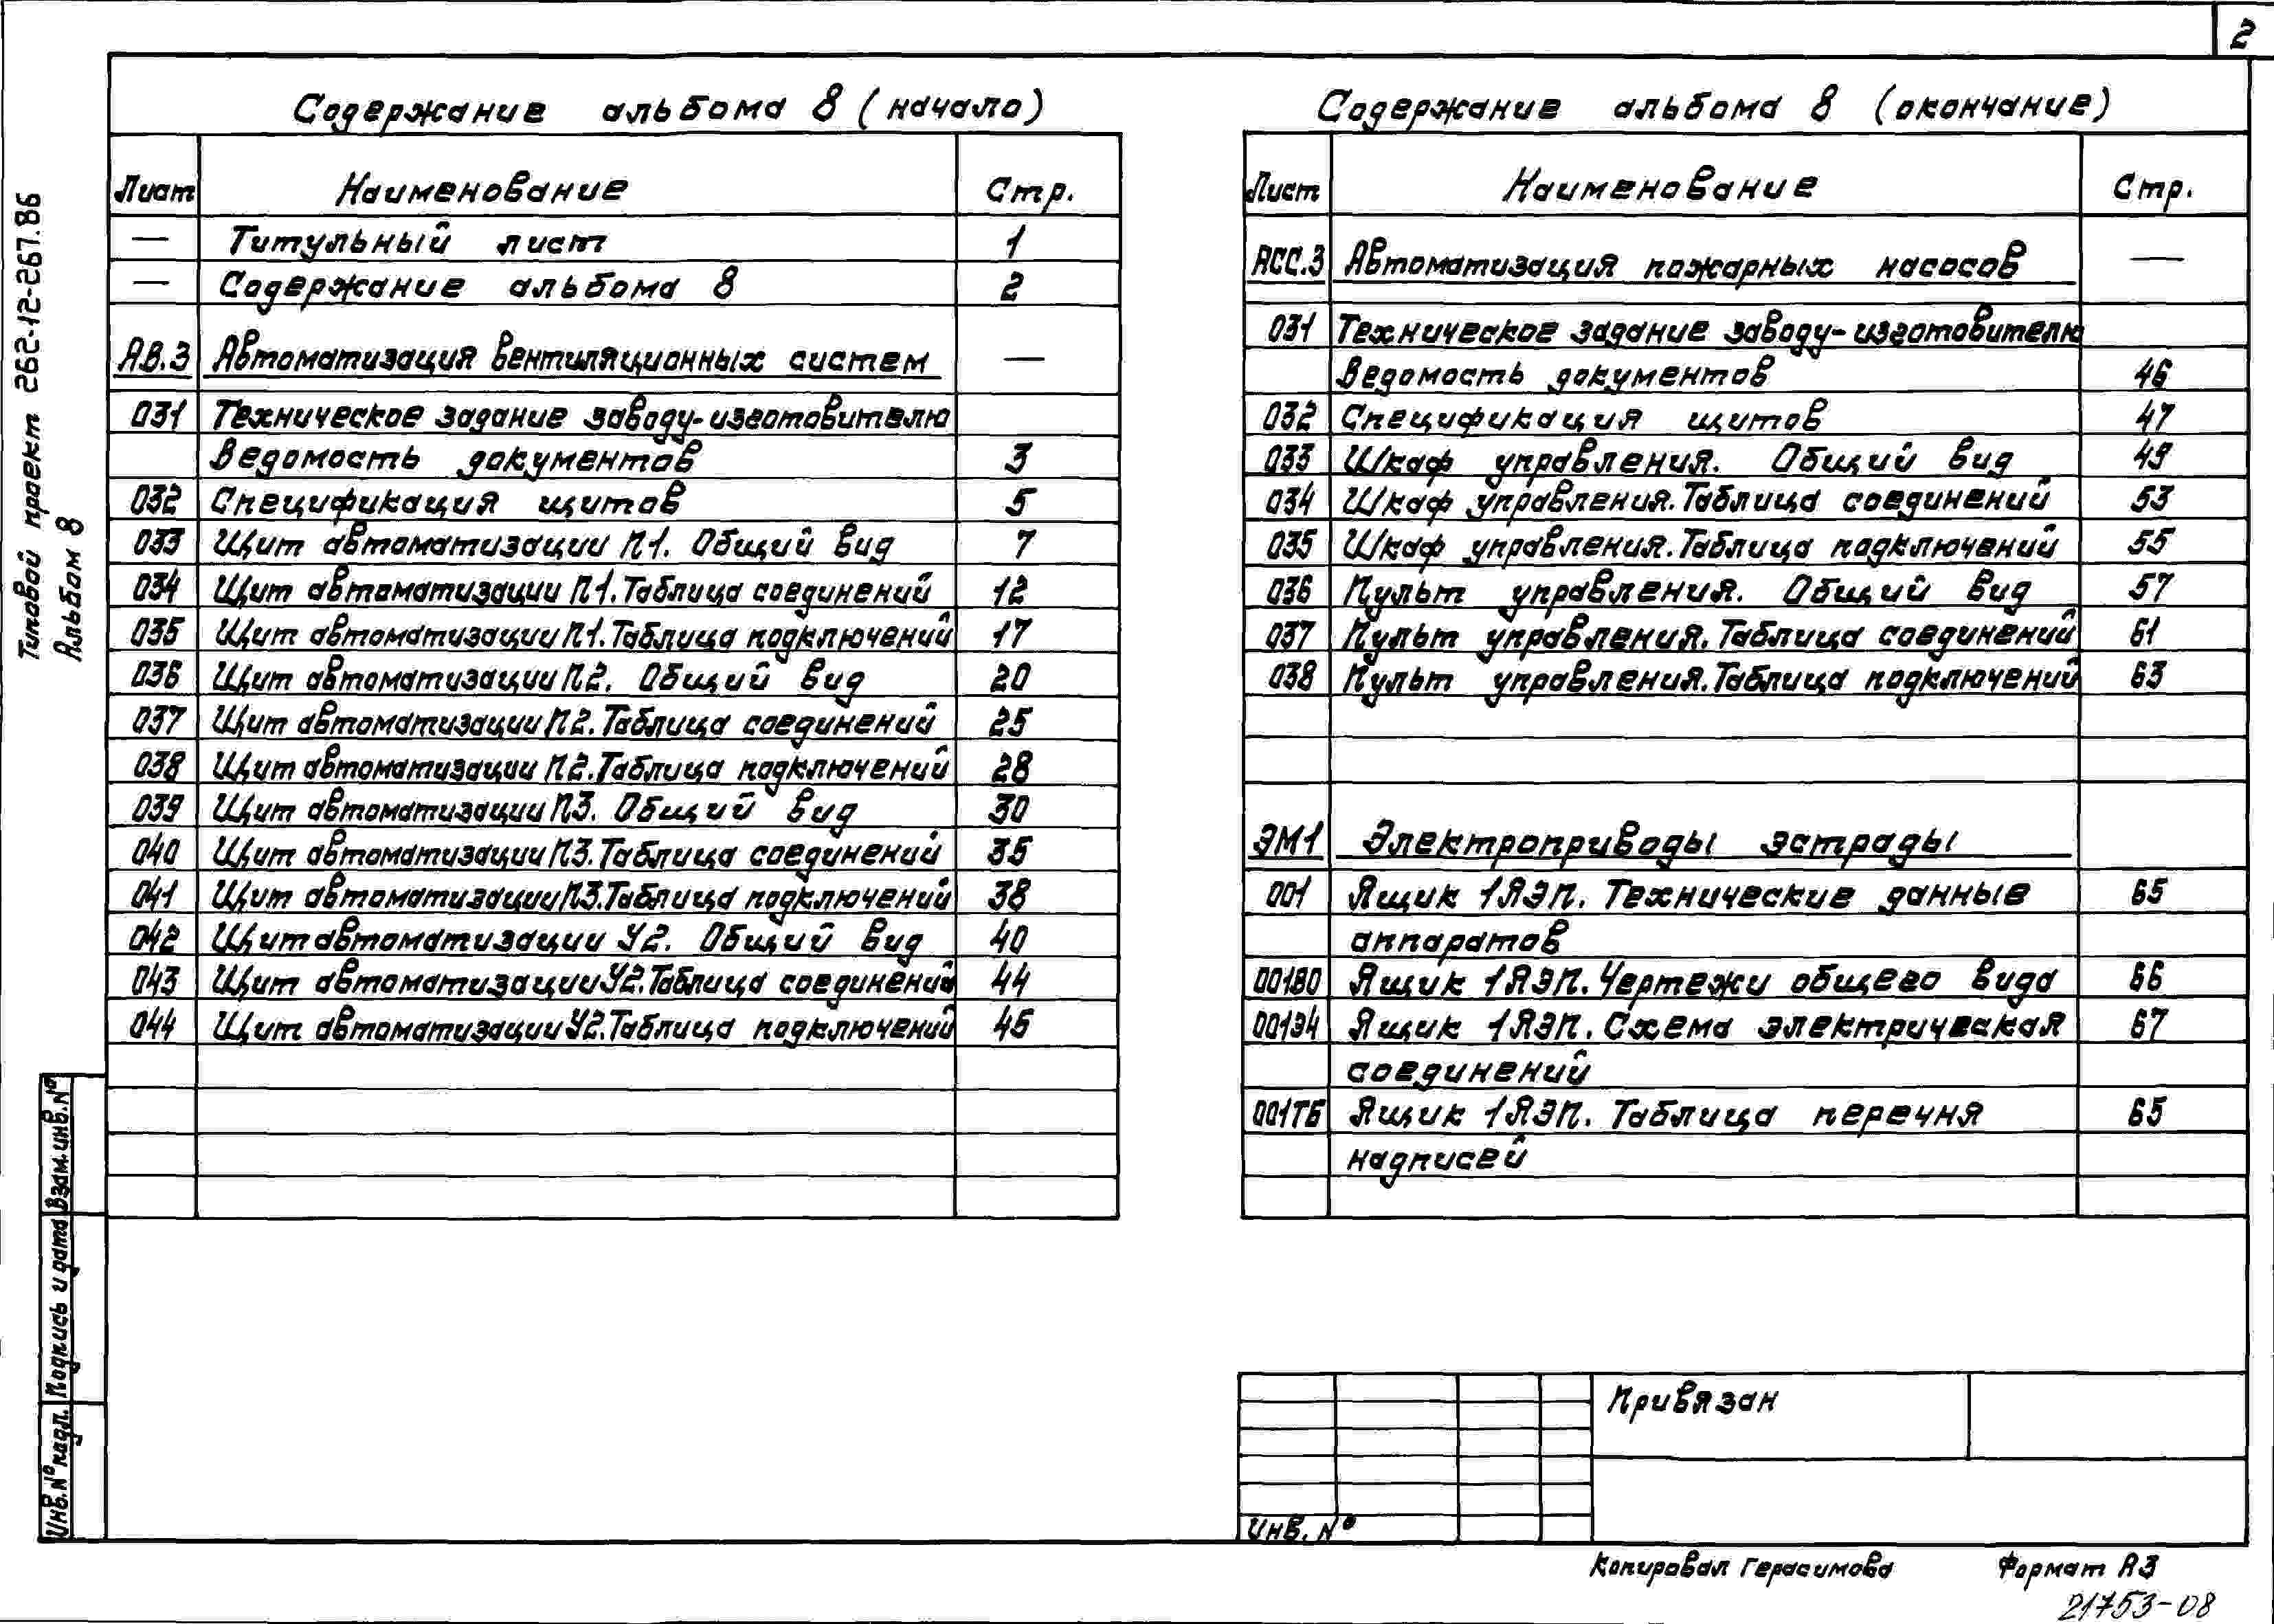 2
Типовой проект 262-12-267.86
Альбом 8
Содержание альбома 8 (начало)
Лист Наименование Стр.
— Титульный лист 1
— Содержание альбома 8 2
АВ.3 Автоматизация вентиляционных систем —
031 Техническое задание заводу-изготовителю
Ведомость документов 3
032 Спецификация щитов 5
033 Щит автоматизации П1. Общий вид 7
034 Щит автоматизации П1. Таблица соединений 12
035 Щит автоматизации П1. Таблица подключений 17
036 Щит автоматизации П2. Общий вид 20
037 Щит автоматизации П2. Таблица соединений 25
038 Щит автоматизации П2. Таблица подключений 28
039 Щит автоматизации П3. Общий вид 30
040 Щит автоматизации П3. Таблица соединений 35
041 Щит автоматизации П3. Таблица подключений 38
042 Щит автоматизации У2. Общий вид 40
043 Щит автоматизации У2. Таблица соединений 44
044 Щит автоматизации У2. Таблица подключений 45
Содержание альбома 8 (окончание)
Лист Наименование Стр.
АСС.3 Автоматизация пожарных насосов —
031 Техническое задание заводу-изготовителю
Ведомость документов 46
032 Спецификация щитов 47
033 Шкаф управления. Общий вид 49
034 Шкаф управления. Таблица соединений 53
035 Шкаф управления. Таблица подключений 55
036 Пульт управления. Общий вид 57
037 Пульт управления. Таблица соединений 61
038 Пульт управления. Таблица подключений 63
ЭМ1 Электроприводы эстрады
001 Ящик 1ЯЭП. Технические данные 65
аппаратов
001ВО Ящик 1ЯЭП. Чертежи общего вида 66
001Э4 Ящик 1ЯЭП. Схема электрическая 67
соединений
001ТБ Ящик 1ЯЭП. Таблица перечня 65
надписей
Взам. инв. №
Подпись и дата
Инв. № подл.
Привязан
Инв. №
Копировал Герасимова Формат А3
21753-08